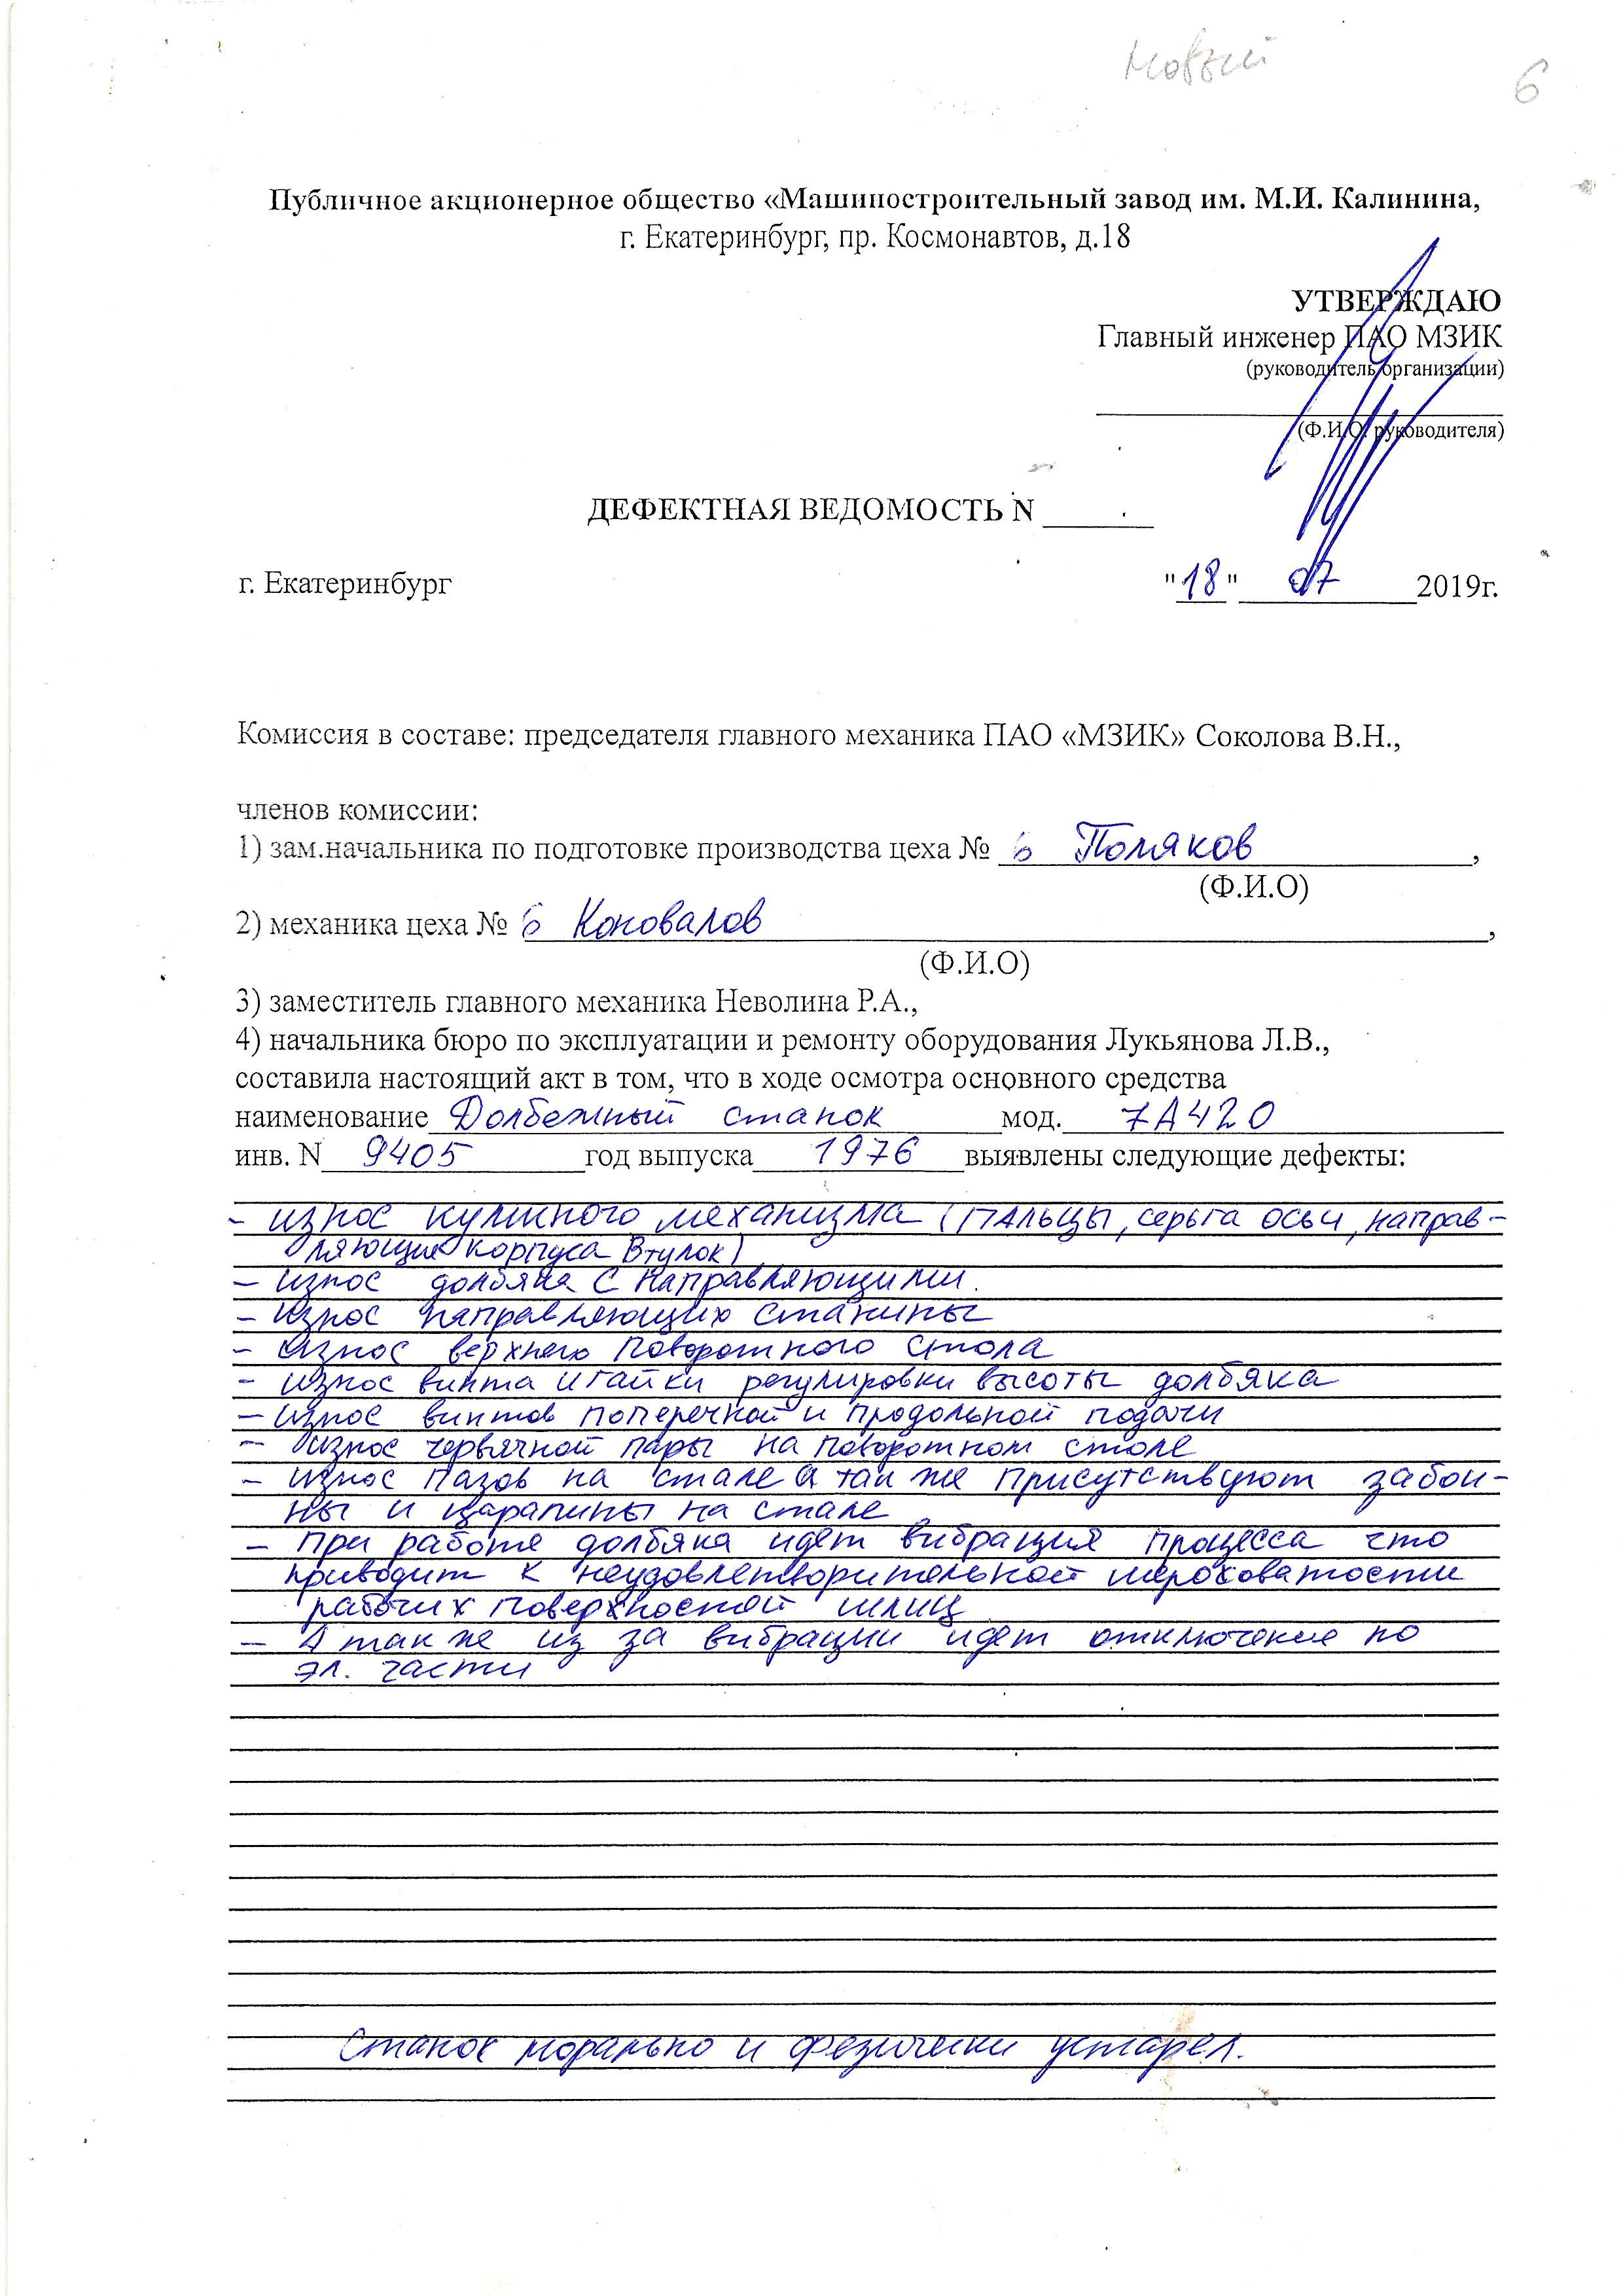 Новый
6
Публичное акционерное общество «Машиностроительный завод им. М.И. Калинина,
г. Екатеринбург, пр. Космонавтов, д.18
УТВЕРЖДАЮ
Главный инженер ПАО МЗИК
(руководитель организации)
(Ф.И.О. руководителя)
ДЕФЕКТНАЯ ВЕДОМОСТЬ N ______
г. Екатеринбург "18" 07 2019г.
Комиссия в составе: председателя главного механика ПАО «МЗИК» Соколова В.Н.,
членов комиссии:
1) зам.начальника по подготовке производства цеха № 6 Поляков,
(Ф.И.О)
2) механика цеха № 6 Коновалов,
(Ф.И.О)
3) заместитель главного механика Неволина Р.А.,
4) начальника бюро по эксплуатации и ремонту оборудования Лукьянова Л.В.,
составила настоящий акт в том, что в ходе осмотра основного средства
наименование Долбежный станок мод. 7А420
инв. N 9405 год выпуска 1976 выявлены следующие дефекты:
- износ кулисного механизма (пальцы, серьга осьи, направ-
ляющие корпуса втулок)
- износ долбяка с направляющими.
- износ направляющих станины
- износ верхнего поворотного стола
- износ винта и гайки регулировки высоты долбяка
- износ винтов поперечной и продольной подачи
- износ червячной пары на поворотном столе
- износ пазов на столе а так же присутствуют забои-
ны и царапины на столе
- при работе долбяка идет вибрация процесса что
приводит к неудовлетворительной шероховатости
рабочих поверхностей шлиц
- А так же из за вибрации идет отключение по
эл. части
Станок морально и физически устарел.